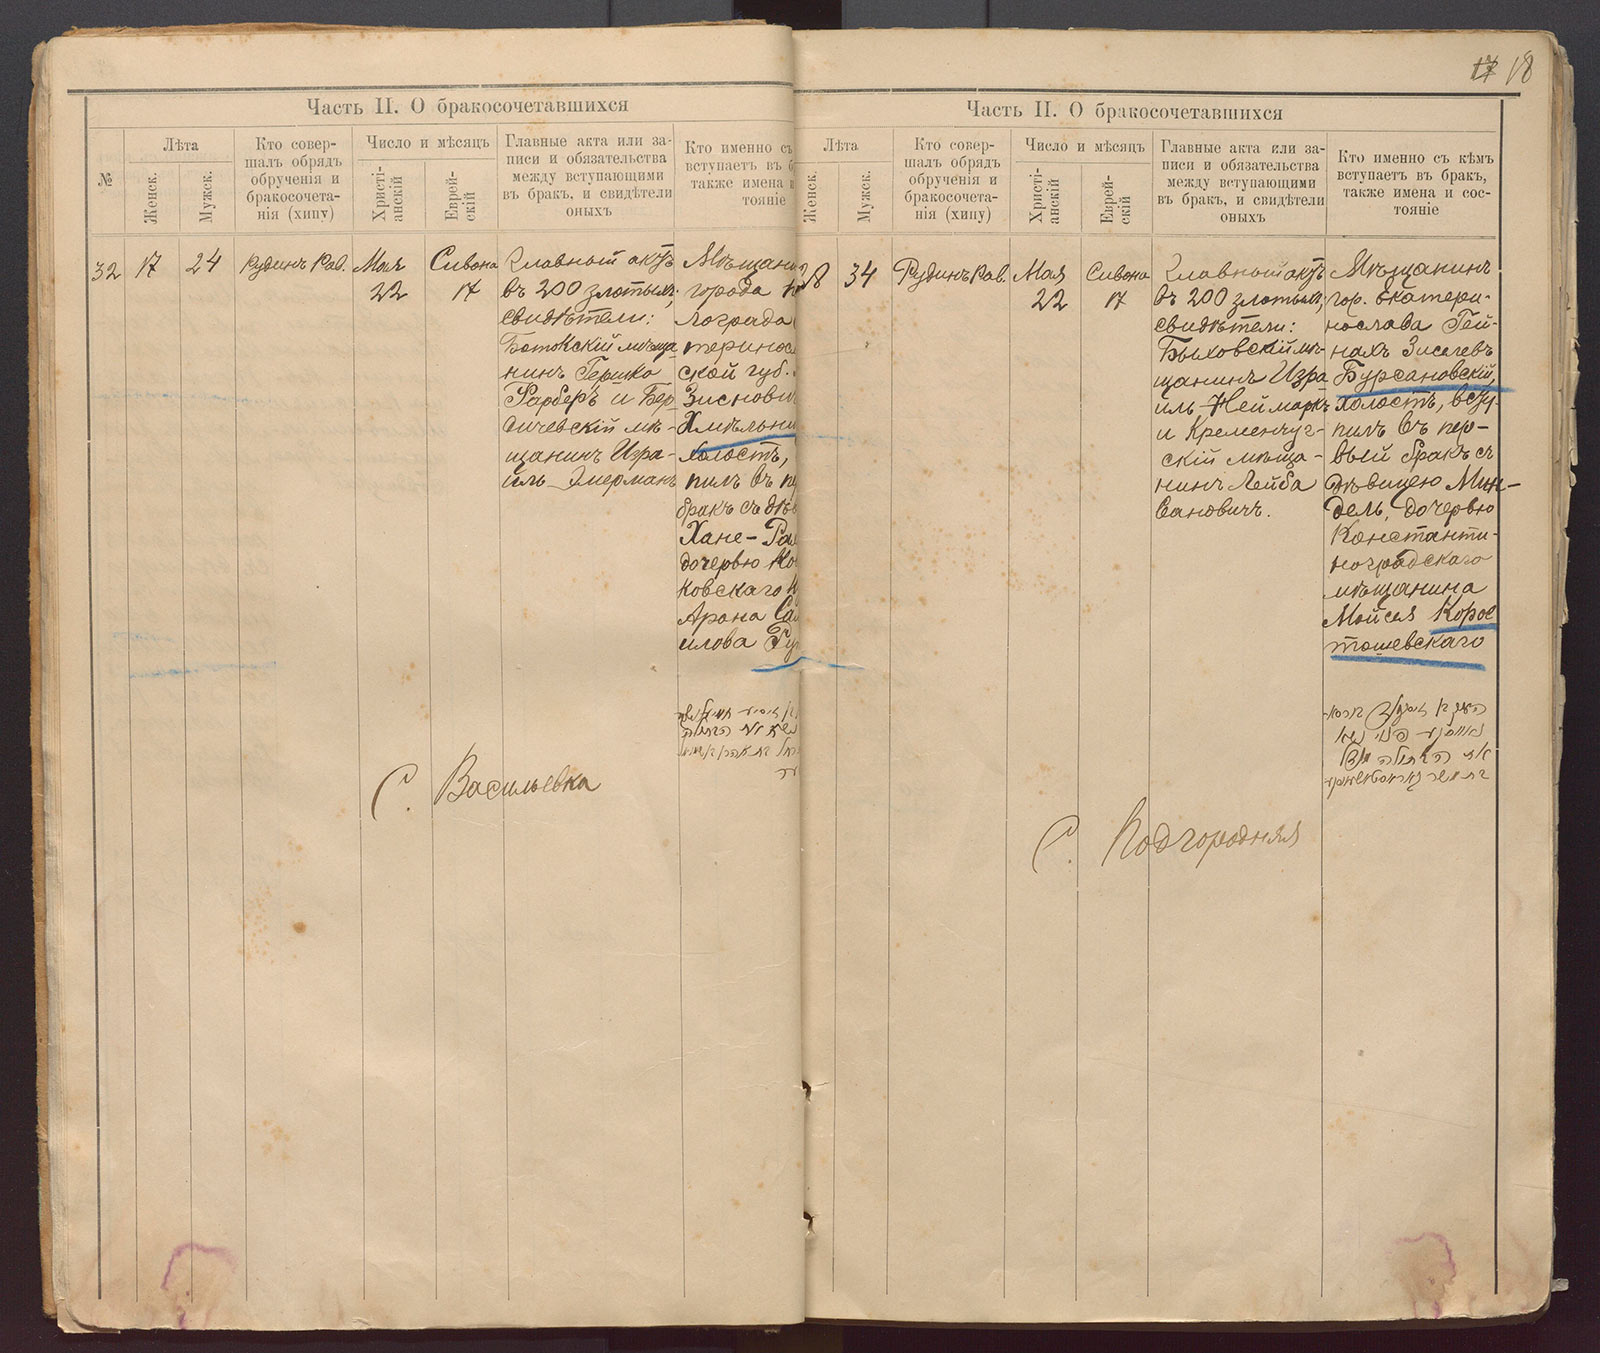 Часть II. О бракосочетавшихся
№
Лѣта
Женск.
Мужск.
Кто совер-
шалъ обрядъ
обрученія и
бракосочета-
нія (хипу)
Число и мѣсяцъ
Христі-
анскій
Еврей-
скій
Главные акта или за-
писи и обязательства
между вступающими
въ бракъ, и свидѣтели
оныхъ
Кто именно съ
вступаетъ въ б
также имена и
тояніе
32
17
24
Рудинъ Рав.
Мая
22
Сивона
17
Главный актъ
въ 200 злотыхъ;
свидѣтели:
мѣща-
нинъ Гершко
Фарберъ и Бер-
дичевскій мѣ-
щанинъ Изра-
иль Эперманъ
Мѣщани
города
лограда
теринос
ской губ.
Зисnови
Хмѣльни
холостъ,
пилъ въ пе
бракъ съ дѣв
Хане-Ра
дочерью Ко
ковскаго
Арона Са
илова Гу
С. Васильевка
17 18
Часть II. О бракосочетавшихся
Лѣта
Женск.
Мужск.
Кто совер-
шалъ обрядъ
обрученія и
бракосочета-
нія (хипу)
Число и мѣсяцъ
Христі-
анскій
Еврей-
скій
Главные акта или за-
писи и обязательства
между вступающими
въ бракъ, и свидѣтели
оныхъ
Кто именно съ кѣмъ
вступаетъ въ бракъ,
также имена и сос-
тояніе
18
34
Рудинъ Рав.
Мая
22
Сивона
17
Главный актъ
въ 200 злотыхъ;
свидѣтели:
Быховскій мѣ-
щанинъ Изра
иль Неймаркъ
и Кременчуг-
скій мѣща-
нинъ Лейба
Сановичъ.
Мѣщанинъ
гор. Екатери-
нослава Гей-
нахъ Зиселевъ
Бурсановскій,
холостъ, всту-
пилъ въ пер-
вый бракъ съ
дѣвицею Мин-
дель, дочерью
Константи-
ноградскаго
мѣщанина
Мойсея Корос
тошевскаго
את הבתולה
С. Подгородняя